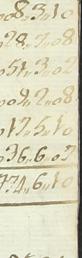 08.3.10
28.7.08
51.3.02
09.2.08
17.5.10
36.6.02
774.6.10